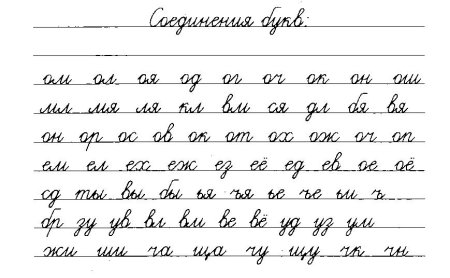 Соединения букв:
ом ол оя од ог оч ок он ош
мл мя ля кл вм ся дл бя вя
он ор ос ов ок от ох ож оч оп
ем ел ех еж ез её ед ев ое оё
сд ты вы бы ья ъя ье ъе ьи ъ
бр зу ув вл вм ве вё уд уз ум
жи ши ча ща чу щу чк чн